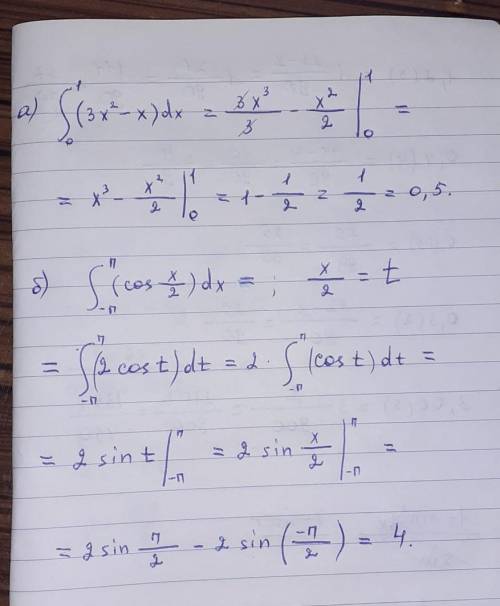 а) ∫₀¹ (3x² − x) dx = 3x³/3 − x²/2 |₀¹ =
= x³ − x²/2 |₀¹ = 1 − 1/2 = 1/2 = 0,5.
б) ∫₋π^π (cos x/2) dx = ; x/2 = t
= ∫₋π^π (2 cos t) dt = 2 · ∫₋π^π (cos t) dt =
= 2 sin t |₋π^π = 2 sin x/2 |₋π^π =
= 2 sin π/2 − 2 sin (−π/2) = 4.